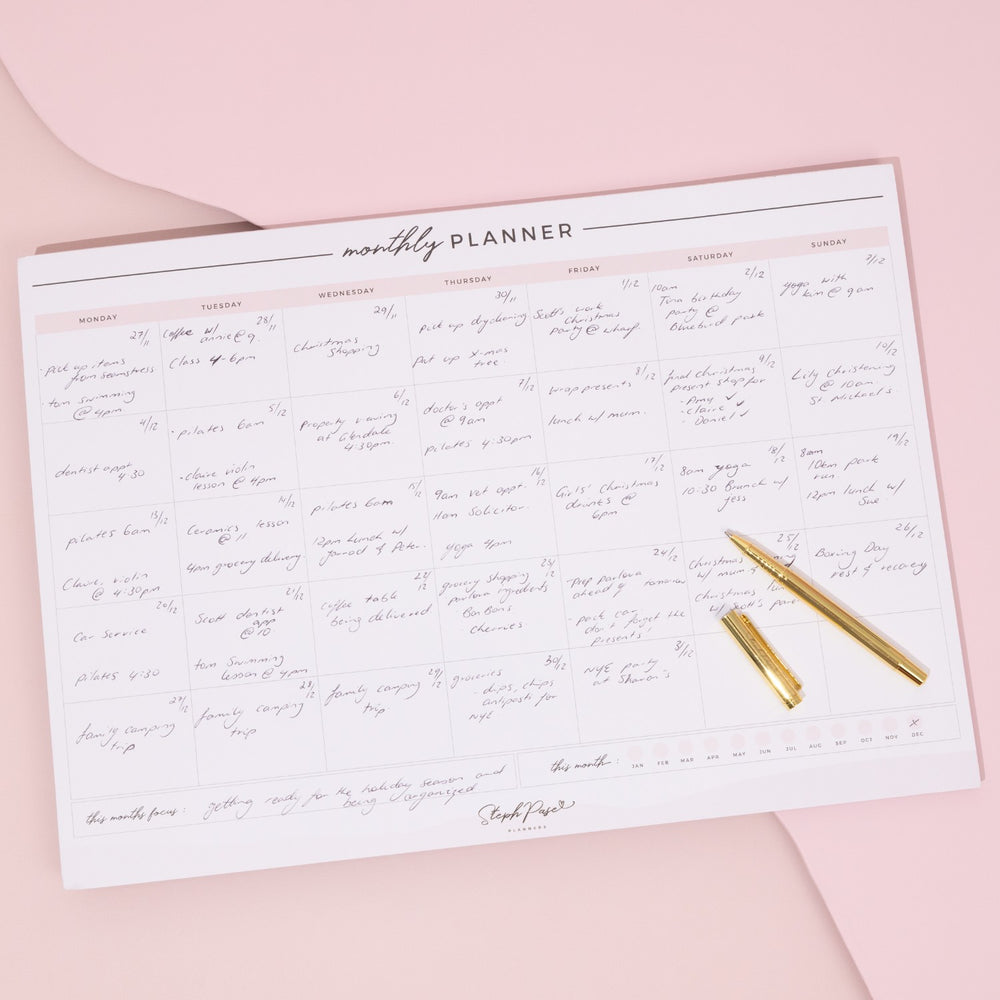 monthly PLANNER
MONDAY TUESDAY WEDNESDAY THURSDAY FRIDAY SATURDAY SUNDAY
27/11
· pick up items
from seamstress
· tom swimming
@ 4pm
28/11
Coffee w/
annie @ 9.
Class 4-6pm
29/11
Christmas
Shopping
30/11
Pick up drycleaning
Put up X-mas
tree.
1/12
Scott's work
Christmas
party @ wharf.
2/12
10am
birthday
party @
Bluebird park
3/12
yoga with
@ 9am
4/12
dentist appt
4:30
5/12
· pilates 6am
· claire violin
lesson @ 4pm
6/12
Property viewing
at Glendale
4:30pm.
7/12
doctor's appt
@ 9am
pilates 4:30pm
8/12
wrap presents
lunch w/ mum.
9/12
final christmas
present shop for
- Amy ✓
- claire ✓
- Daniel ✓
10/12
Lily Christening
@ 10am
St Michael's.
13/12
pilates 6am
Claire, violin
@ 4:30pm
14/12
Ceramics lesson
@ 11
4pm grocery delivery
15/12
pilates 6am
12pm lunch w/
Jarrod & Peter.
16/12
9am vet appt.
11am Solicitor.
yoga 4pm
17/12
Girls' Christmas
drinks @
6pm
18/12
8am yoga
10:30 Brunch w/
Jess
19/12
8am
10km park
run.
12pm lunch w/
Sue.
20/12
Car Service
pilates 4:30
21/12
Scott dentist
app
@ 10.
tom Swimming
lesson @ 4pm
22/12
coffee table
being delivered
23/12
grocery shopping
pavlova ingredients
BonBons
· cherries
24/12
· Prep pavlova
ahead of
· pack car
don't forget the
presents!
25/12
Christmas
w/ mum &
Christmas
w/ Scott's
26/12
Boxing Day
rest & recovery
27/12
family camping
trip
28/12
family camping
trip
29/12
family camping
trip
30/12
groceries
- dips, chips
antipasto for
NYE
31/12
NYE party
at Sharon's
this months focus: getting ready for the holiday season and
being organized
this month: JAN FEB MAR APR MAY JUN JUL AUG SEP OCT NOV DEC
x
Steph Pase
PLANNERS